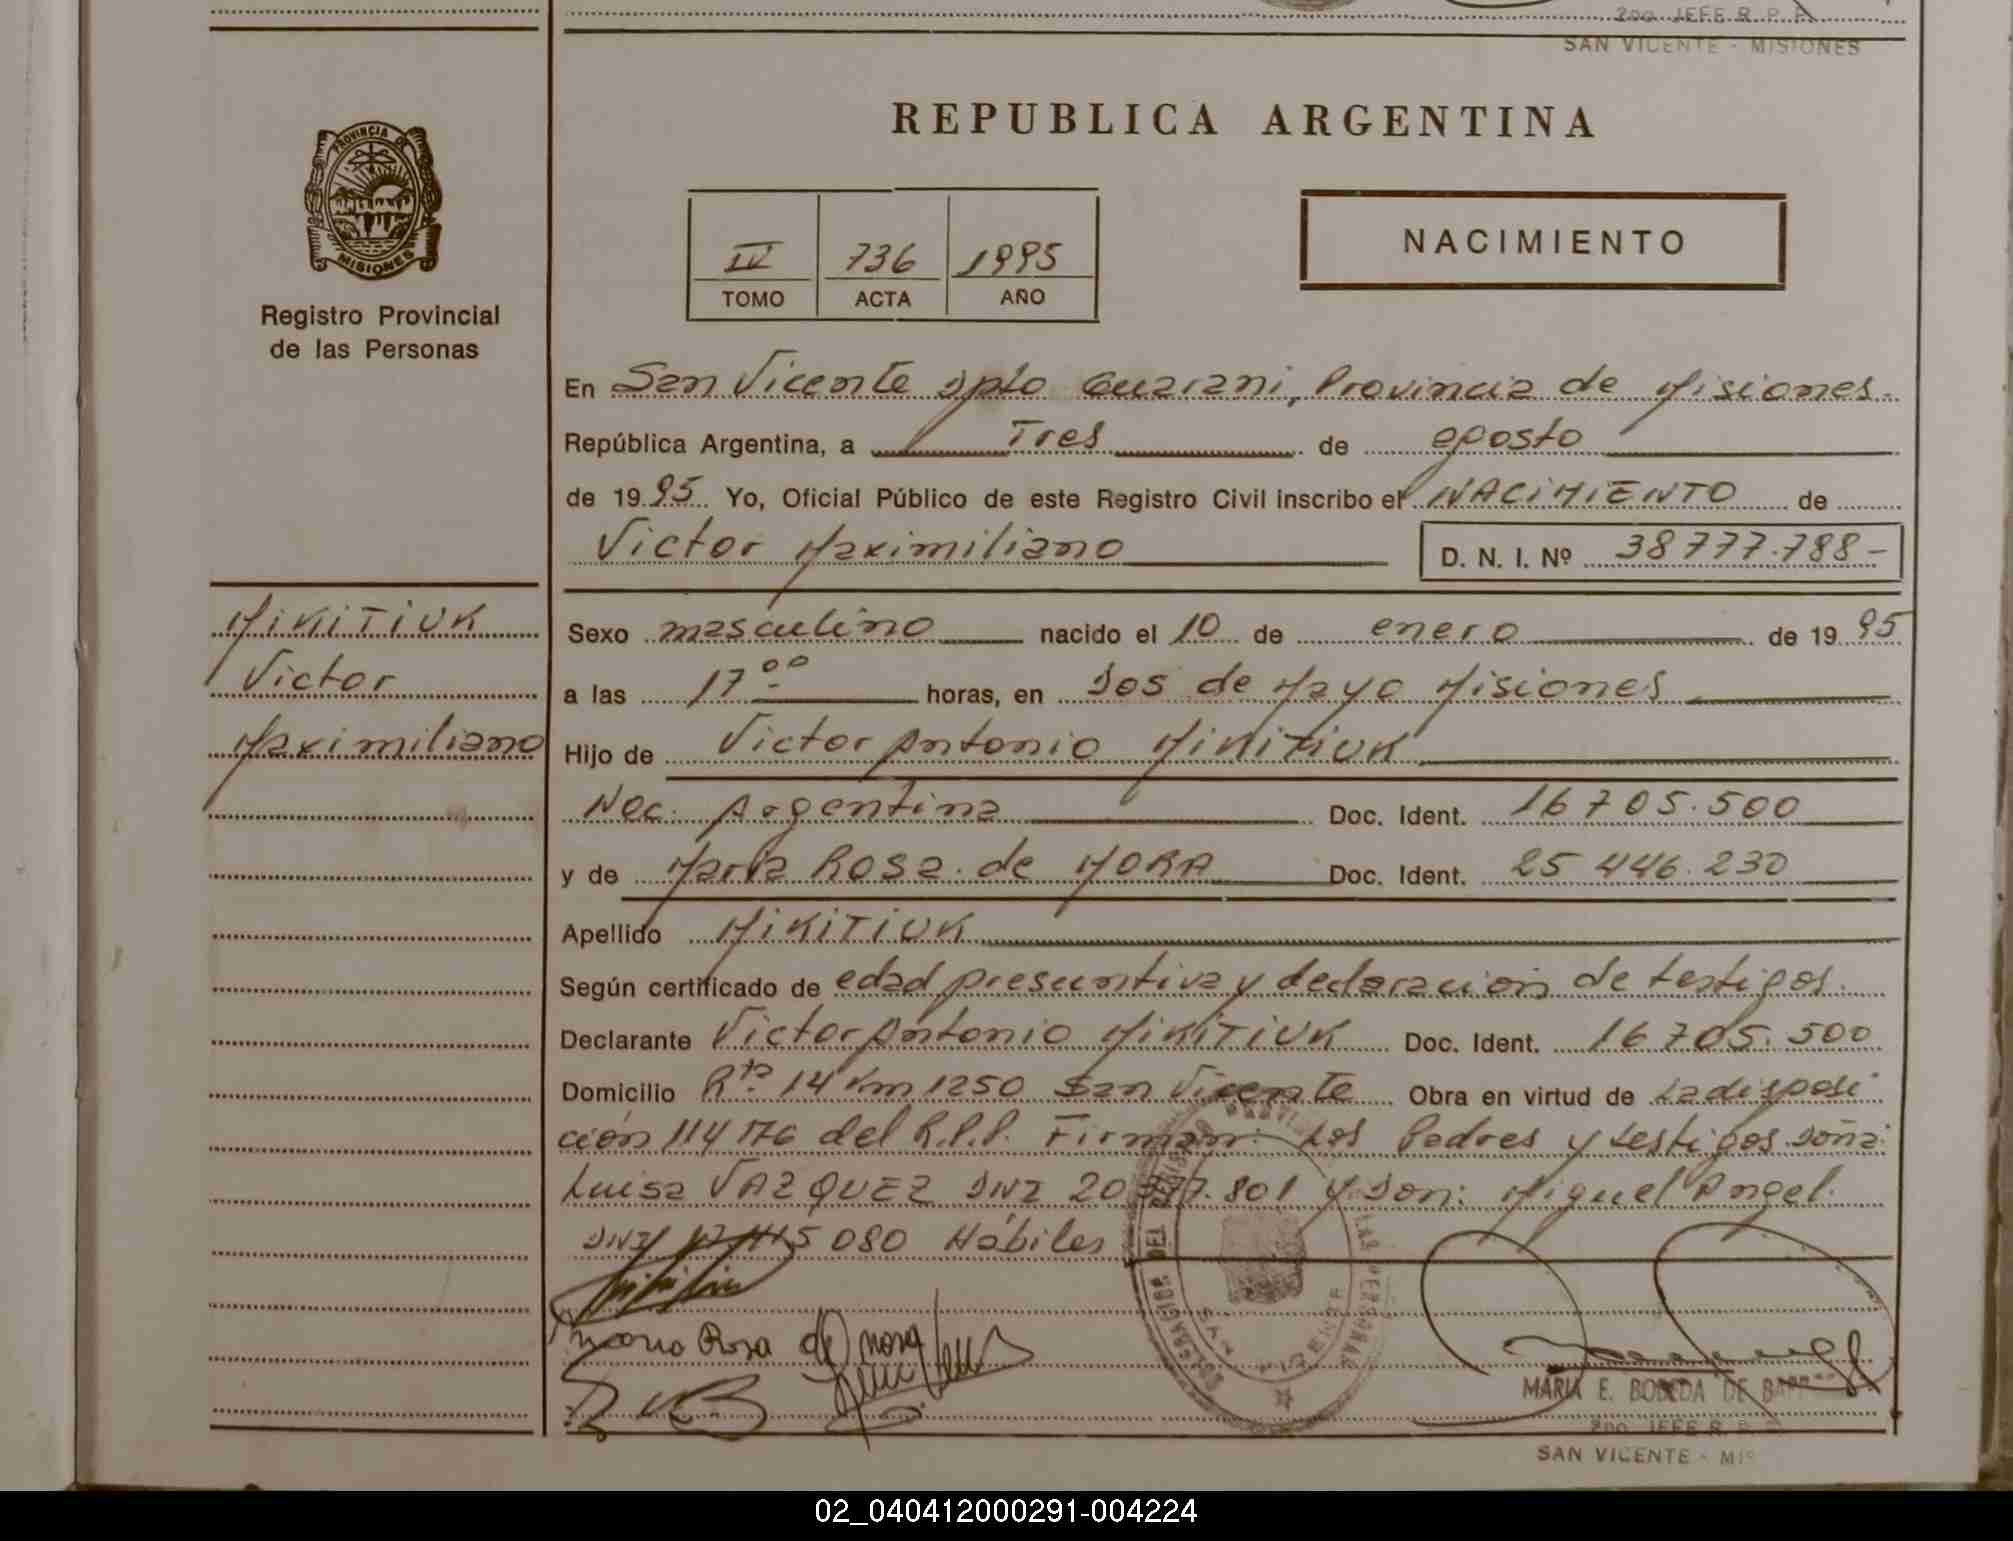 2DO. JEFE R. P. P.
SAN VICENTE - MISIONES
REPUBLICA ARGENTINA
PROVINCIA DE
MISIONES
Registro Provincial
de las Personas
IV 736 1995
TOMO ACTA AÑO
NACIMIENTO
En San Vicente Dpto Guarani, Provincia de Misiones.
República Argentina, a Tres de agosto
de 19 95 Yo, Oficial Público de este Registro Civil inscribo el NACIMIENTO de
Victor Maximiliano D. N. I. Nº 38777.788-
MIKITIUK
Victor
Maximiliano
Sexo masculino nacido el 10 de enero de 19 95
a las 17 oo horas, en Dos de Mayo Misiones
Hijo de Victor Antonio MIKITIUK
Nac. Argentina Doc. Ident. 16705.500
y de Maria Rosa de MORA Doc. Ident. 25 446.230
Apellido MIKITIUK
Según certificado de edad presuntiva y declaracion de testigos.
Declarante Victor Antonio MIKITIUK Doc. Ident. 16705.500
Domicilio Rta 14 Km 1250 San Vicente Obra en virtud de La disposi
ción 114/76 del R.P.P. Firman: Los Padres y testigos doña:
Luisa VAZQUEZ DNI 20 .801 y Don: Miguel Angel
DNI 080 Hábiles
Maria Rosa de mora
DELEGACION DEL REGISTRO PROVINCIAL DE LAS PERSONAS
SAN VICENTE
MARIA E. BOBEDA DE
2DO. JEFE R. P.
SAN VICENTE - MIS
02_040412000291-004224